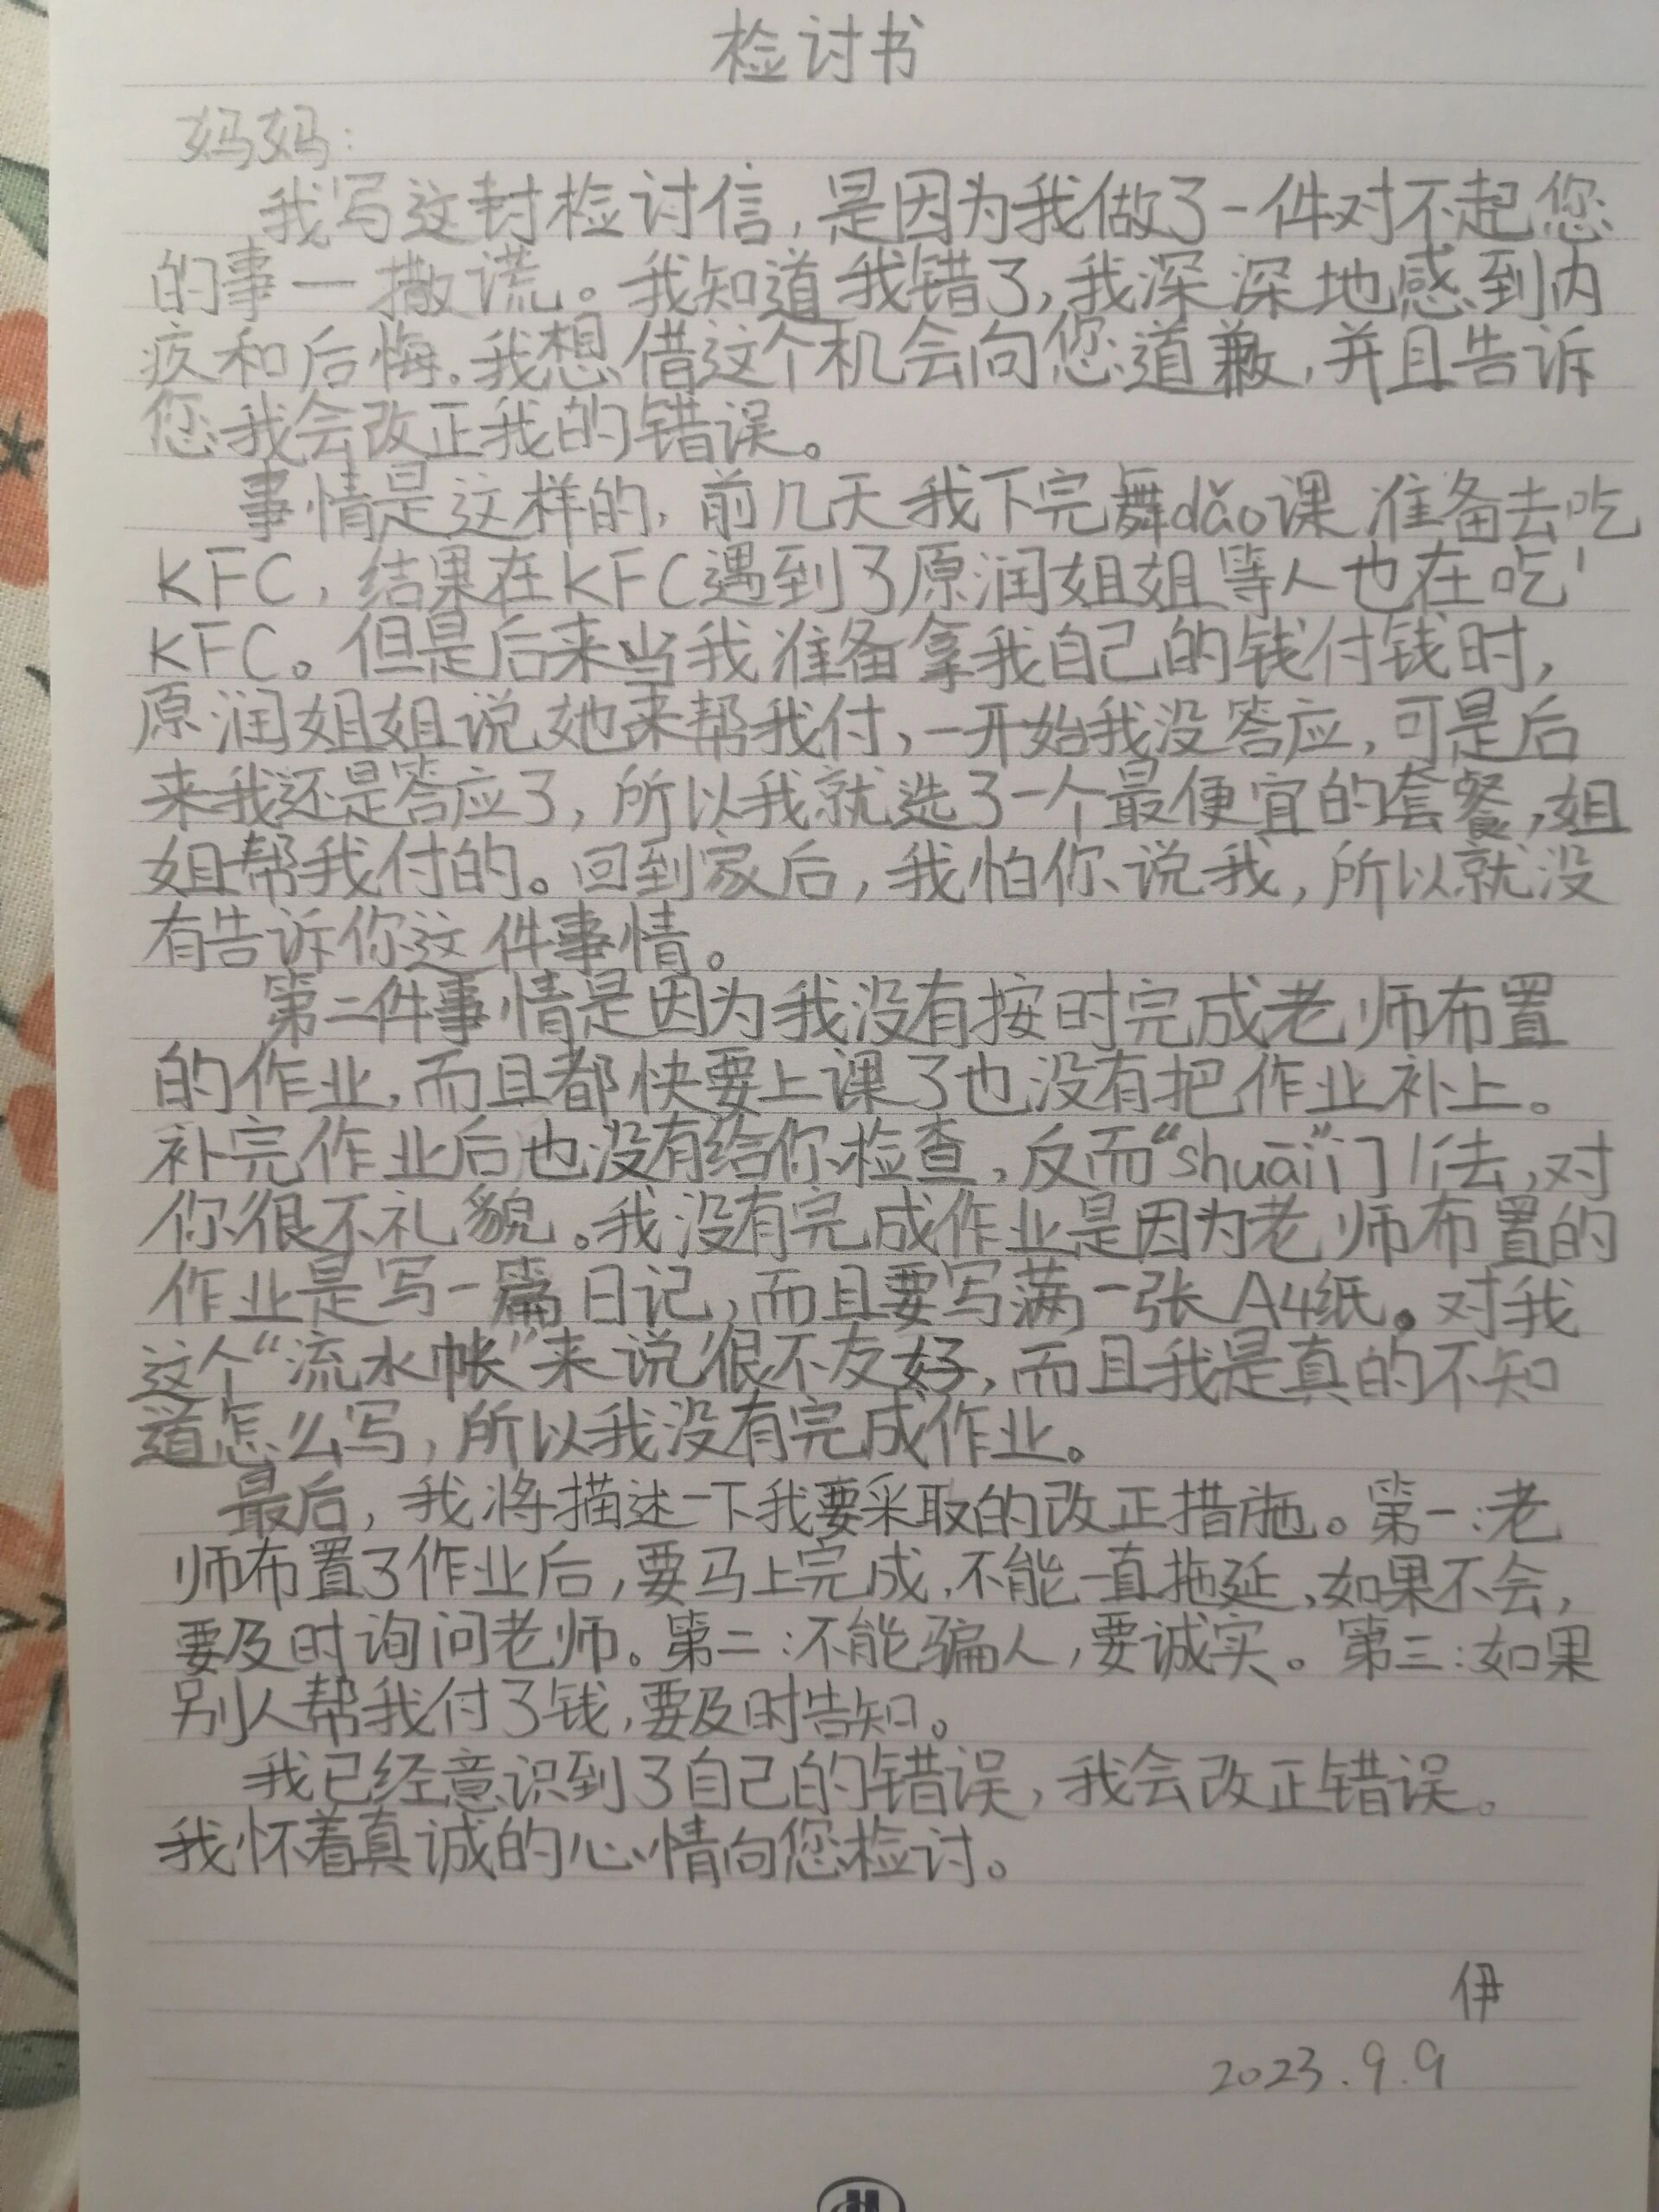 检讨书
妈妈：
我写这封检讨信，是因为我做了一件对不起您
的事一撒谎。我知道我错了，我深深地感到内
疚和后悔。我想借这个机会向您道歉，并且告诉
您我会改正我的错误。
事情是这样的，前几天我下完舞dǎo课准备去吃
KFC，结果在KFC遇到了原润姐姐等人也在吃
KFC。但是后来当我准备拿我自己的钱付钱时，
原润姐姐说她来帮我付，一开始我没答应，可是后
来我还是答应了，所以我就选了一个最便宜的套餐，姐
姐帮我付的。回到家后，我怕你说我，所以就没
有告诉你这件事情。
第二件事情是因为我没有按时完成老师布置
的作业，而且都快要上课了也没有把作业补上。
补完作业后也没有给你检查，反而“shuāi”门 去，对
你很不礼貌。我没有完成作业是因为老师布置的
作业是写一篇日记，而且要写满一张A4纸。对我
这个“流水帐”来说很不友好，而且我是真的不知
道怎么写，所以我没有完成作业。
最后，我将描述一下我要采取的改正措施。第一：老
师布置了作业后，要马上完成，不能一直拖延，如果不会，
要及时询问老师。第二：不能骗人，要诚实。第三：如果
别人帮我付了钱，要及时告知。
我已经意识到了自己的错误，我会改正错误。
我怀着真诚的心情向您检讨。
伊
2023.9.9